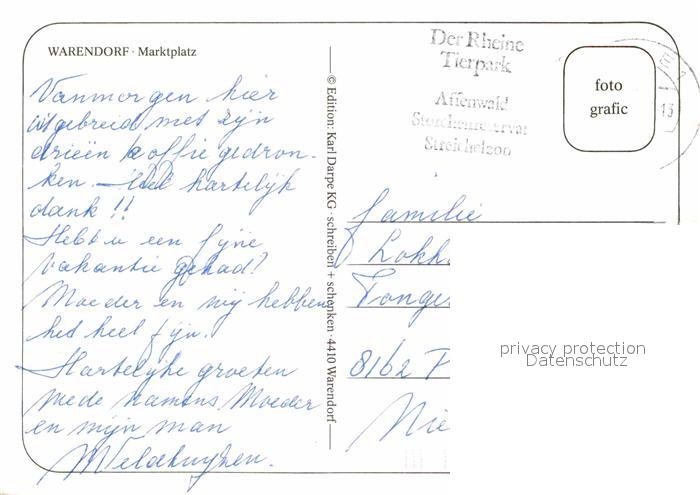 WARENDORF · Marktplatz
Vanmorgen hier
uitgebreid met zijn
drieën koffie gedron-
ken. Heel hartelijk
dank!!
Hebt u een fijne
vakantie gehad?
Moeder en wij hebben
het heel fijn.
Hartelijke groeten
mede namens Moeder
en mijn man
© Edition: Karl Darpe KG · schreiben + schenken · 4410 Warendorf
Der Rheine
Tierpark
Affenwald
Storchenreservat
Streichelzoo
13
foto
grafic
familie
Lokh
Tonge
8162 P
Nie
privacy protection
Datenschutz